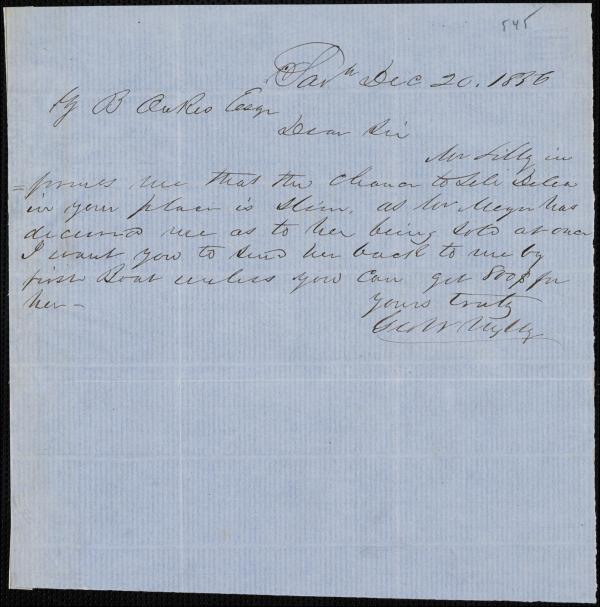 545
Savh Dec 20. 1856
Z B Oakes Esqr
Dear Sir
Mr Lilly in
=formes me that the chance to Sell Delia
in your place is Slim, as Mr Meyer has
deceived me as to her being Sold at once
I want you to Send her back to me by
first Boat unless you can get 800$ for
her –
Yours truly
Geo W Wylly